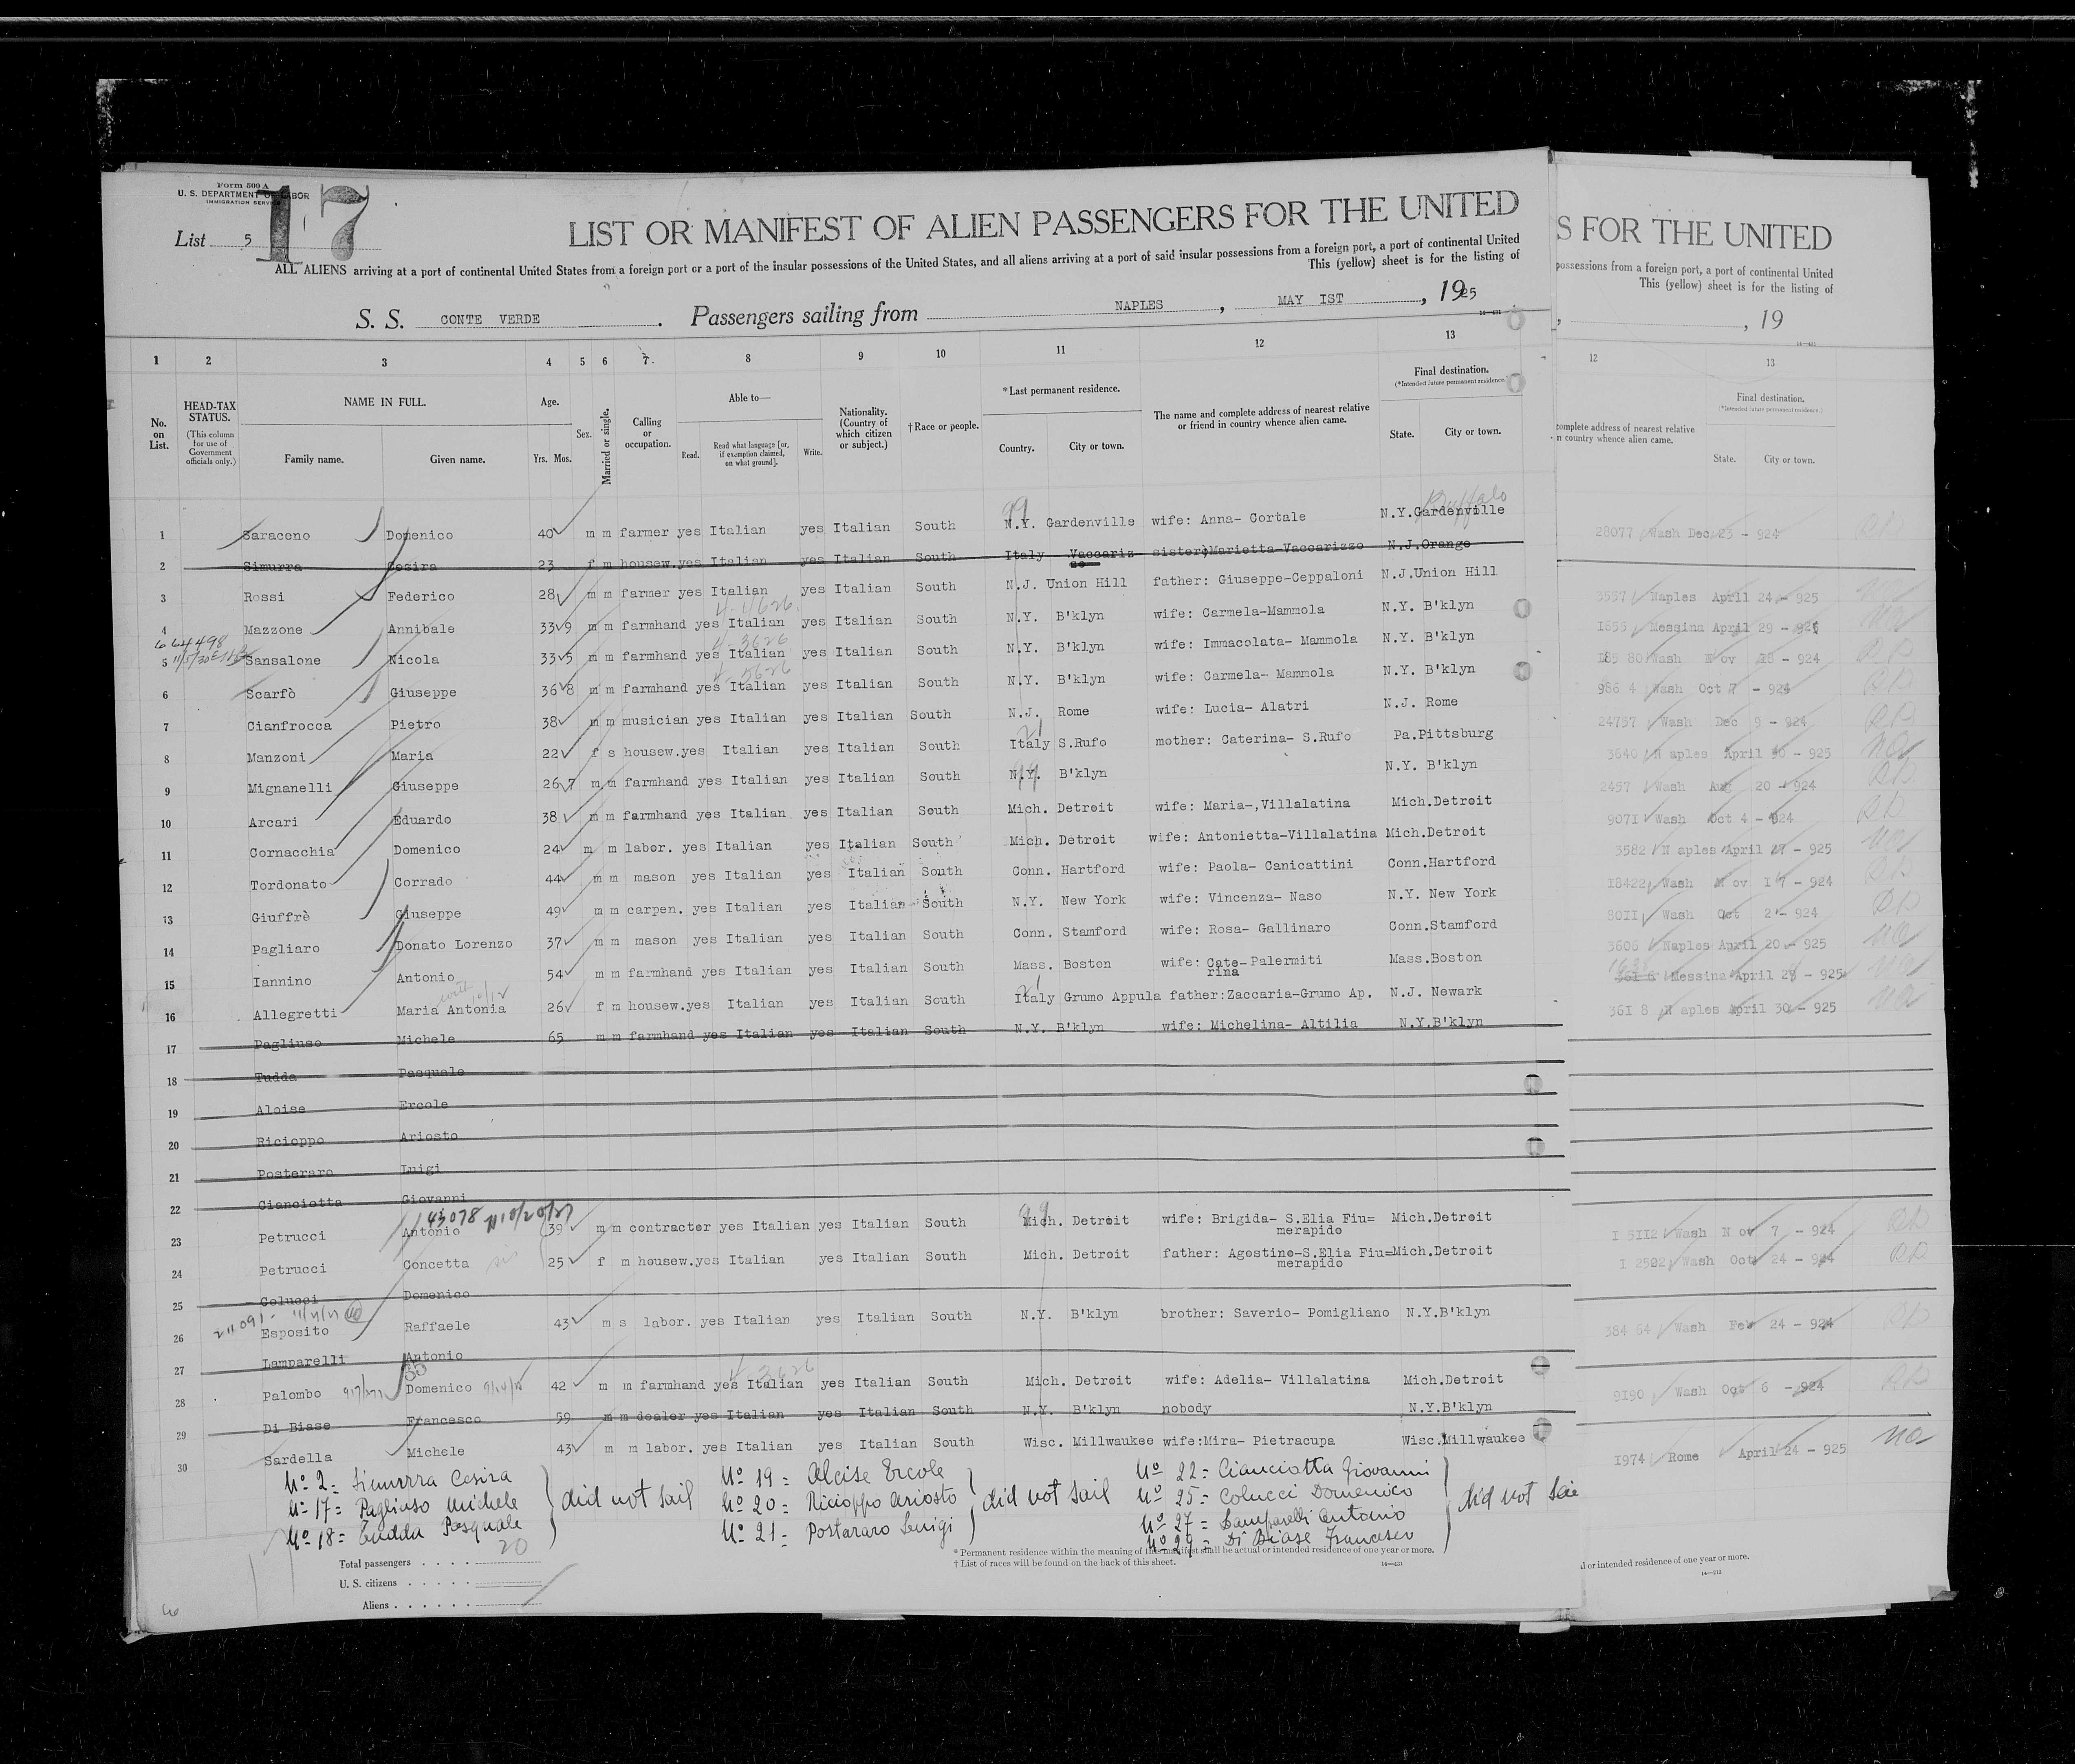 Form 500 A
U. S. DEPARTMENT OF LABOR
IMMIGRATION SERVICE
17
List 5
LIST OR MANIFEST OF ALIEN PASSENGERS FOR THE UNITED
ALL ALIENS arriving at a port of continental United States from a foreign port or a port of the insular possessions of the United States, and all aliens arriving at a port of said insular possessions from a foreign port, a port of continental United
This (yellow) sheet is for the listing of
S. S. CONTE VERDE. Passengers sailing from NAPLES, MAY IST, 1925
1 2 3 4 5 6 7. 8 9 10 11 12 13
No. on List.
HEAD-TAX STATUS. (This column for use of Government officials only.)
NAME IN FULL.
Family name. Given name.
Age.
Yrs. Mos.
Sex.
Married or single.
Calling or occupation.
Able to—
Read. Read what language [or, if exemption claimed, on what ground]. Write.
Nationality. (Country of which citizen or subject.)
†Race or people.
*Last permanent residence.
Country. City or town.
The name and complete address of nearest relative or friend in country whence alien came.
Final destination.
(*Intended future permanent residence.)
State. City or town.
Buffalo
1 Saraceno Domenico 40 m m farmer yes Italian yes Italian South N.Y. Gardenville wife: Anna- Cortale N.Y.Gardenville
2 Simurra Cesira 23 f m housew.yes Italian yes Italian South Italy Vaccariz zo sister: Marietta-Vaccarizzo N.J.Orange
3 Rossi Federico 28 m m farmer yes Italian yes Italian South N.J. Union Hill father: Giuseppe-Ceppaloni N.J.Union Hill
4 Mazzone Annibale 33 9 m m farmhand yes Italian yes Italian South N.Y. B'klyn wife: Carmela-Mammola N.Y. B'klyn
664498
5 Sansalone Nicola 33 5 m m farmhand yes Italian yes Italian South N.Y. B'klyn wife: Immacolata- Mammola N.Y. B'klyn
6 Scarfò Giuseppe 36 8 m m farmhand yes Italian yes Italian South N.Y. B'klyn wife: Carmela- Mammola N.Y. B'klyn
7 Cianfrocca Pietro 38 m m musician yes Italian yes Italian South N.J. Rome wife: Lucia- Alatri N.J. Rome
8 Manzoni Maria 22 f s housew.yes Italian yes Italian South Italy S.Rufo mother: Caterina- S.Rufo Pa.Pittsburg
9 Mignanelli Giuseppe 26 7 m m farmhand yes Italian yes Italian South N.Y. B'klyn N.Y. B'klyn
10 Arcari Eduardo 38 m m farmhand yes Italian yes Italian South Mich. Detroit wife: Maria-,Villalatina Mich.Detroit
11 Cornacchia Domenico 24 m m labor. yes Italian yes Italian South Mich. Detroit wife: Antonietta-Villalatina Mich.Detroit
12 Tordonato Corrado 44 m m mason yes Italian yes Italian South Conn. Hartford wife: Paola- Canicattini Conn.Hartford
13 Giuffrè Giuseppe 49 m m carpen. yes Italian yes Italian South N.Y. New York wife: Vincenza- Naso N.Y. New York
14 Pagliaro Donato Lorenzo 37 m m mason yes Italian yes Italian South Conn. Stamford wife: Rosa- Gallinaro Conn.Stamford
15 Iannino Antonio 54 m m farmhand yes Italian yes Italian South Mass. Boston wife: Cate-rina Palermiti Mass.Boston
16 Allegretti Maria Antonia 26 f m housew.yes Italian yes Italian South Italy Grumo Appula father:Zaccaria-Grumo Ap. N.J. Newark
17 Pagliuso Michele 65 m m farmhand yes Italian yes Italian South N.Y. B'klyn wife: Michelina- Altilia N.Y.B'klyn
18 Tudda Pasquale
19 Aloise Ercole
20 Ricioppo Ariosto
21 Posteraro Luigi
22 Cianciotta Giovanni
23 Petrucci Antonio 39 m m contractor yes Italian yes Italian South Mich. Detroit wife: Brigida- S.Elia Fiu=merapido Mich.Detroit
24 Petrucci Concetta 25 f m housew.yes Italian yes Italian South Mich. Detroit father: Agostino-S.Elia Fiu=merapido Mich.Detroit
25 Colucci Domenico
26 Esposito Raffaele 43 m s labor. yes Italian yes Italian South N.Y. B'klyn brother: Saverio- Pomigliano N.Y.B'klyn
27 Lamparelli Antonio
28 Palombo Domenico 42 m m farmhand yes Italian yes Italian South Mich. Detroit wife: Adelia- Villalatina Mich.Detroit
29 Di Biase Francesco 59 m m dealer yes Italian yes Italian South N.Y. B'klyn nobody N.Y.B'klyn
30 Sardella Michele 43 m m labor. yes Italian yes Italian South Wisc. Millwaukee wife:Mira- Pietracupa Wisc.Millwaukee
Nº 2= Simurra Cesira
Nº 17= Pagliuso Michele
Nº 18= Tudda Pasquale
did not sail
Nº 19= Aloise Ercole
Nº 20= Ricioppo Ariosto
Nº 21= Postararo Luigi
did not sail
Nº 22= Cianciotta Giovanni
Nº 25= Colucci Domenico
Nº 27= Lamparelli Antonio
Nº 29= Di Biase Francesco
did not sai
Total passengers 20
U. S. citizens
Aliens
* Permanent residence within the meaning of this manifest shall be actual or intended residence of one year or more.
† List of races will be found on the back of this sheet.
S FOR THE UNITED
possessions from a foreign port, a port of continental United
This (yellow) sheet is for the listing of
, 19
12 13
complete address of nearest relative
n country whence alien came.
Final destination.
(*Intended future permanent residence.)
State. City or town.
28077 Wash Dec 23 - 924
3557 Naples April 24 - 925
1655 Messina April 29 - 925
185 80 Wash Nov 28 - 924
986 4 Wash Oct 7 - 924
24757 Wash Dec 9 - 924
3640 N aples April 30 - 925
2457 Wash Aug 20 - 924
9071 Wash Oct 4 - 924
3582 N aples April 27 - 925
18422 Wash N ov I7 - 924
80II Wash Oct 2 - 924
3606 Naples April 20 - 925
Messina April 28 - 925
36I 8 N aples April 30 - 925
I 5II2 Wash N ov 7 - 924
I 2502 Wash Oct 24 - 924
384 64 Wash Feb 24 - 924
9I90 Wash Oct 6 - 924
I974 Rome April 24 - 925
l or intended residence of one year or more.